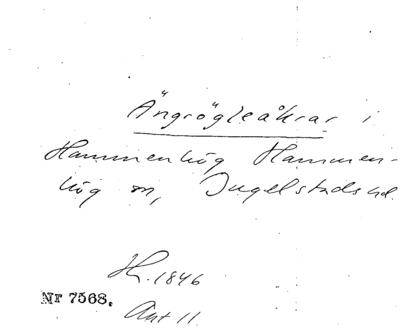 Ängrögleåkrar i
Hammenhög Hammen-
hög sn, Ingelstads hd.
H. 1846
Nr 7568.
Akt 11